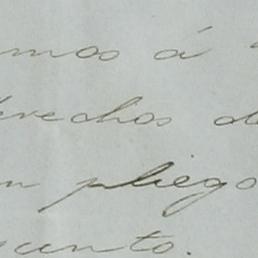 mos á
derechos de
un pliego
sunto.